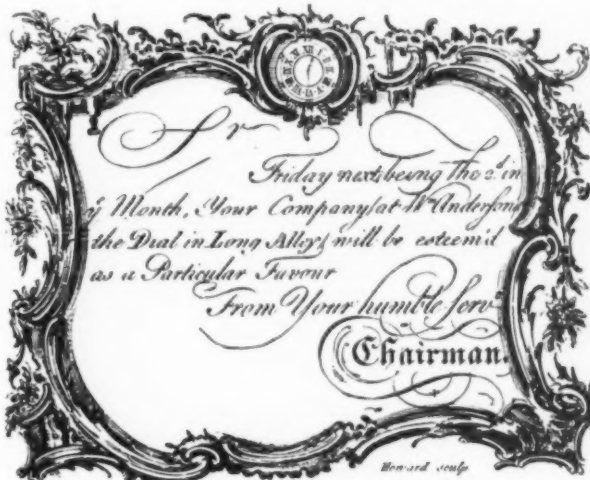 Sr
Friday next, being the 2d. in
ye Month, Your Company at Wm Andersons
the Dial in Long Alley, will be esteem'd
as a Particular Favour
From Your humble Servt
Chairman.
Howard sculp